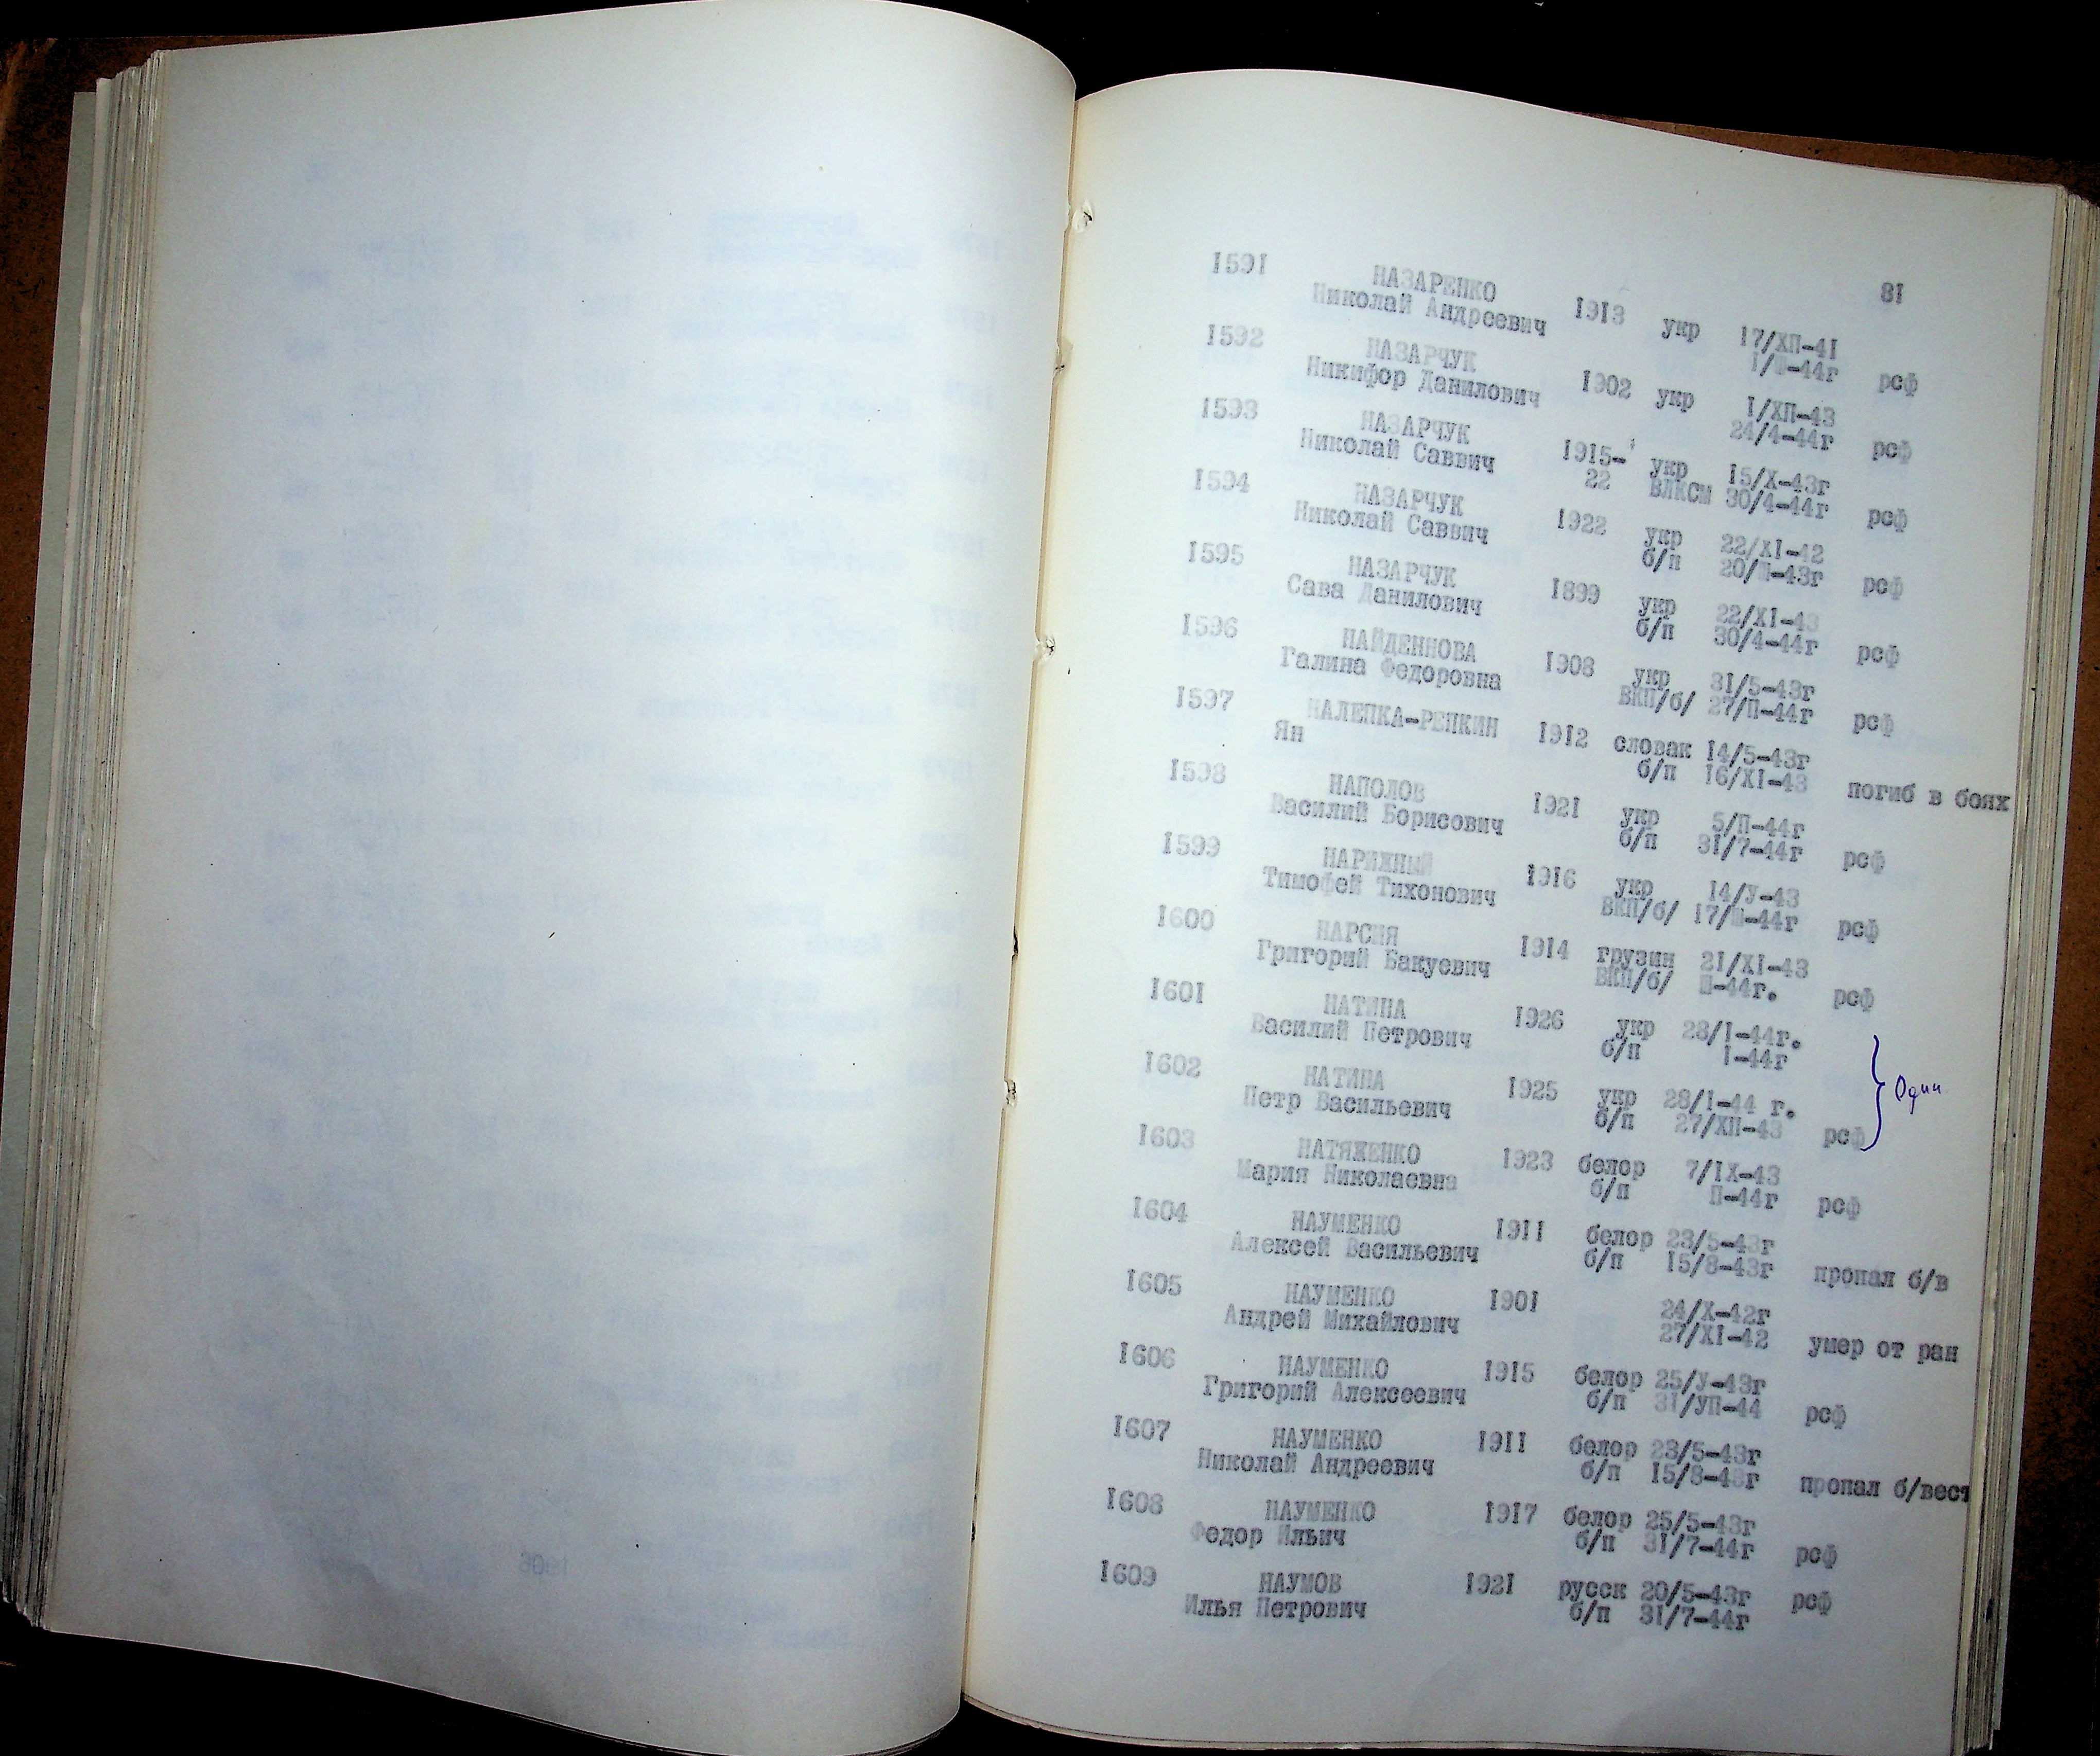 81
1591 НАЗАРЕНКО
Николай Андреевич 1913 укр 17/ХП-41
1/Ш-44г рсф
1592 НАЗАРЧУК
Никифор Данилович 1902 укр I/ХП-43
24/4-44г рсф
1593 НАЗАРЧУК
Николай Саввич 1915- укр 15/Х-43г
22 ВЛКСМ 30/4-44г рсф
1594 НАЗАРЧУК
Николай Саввич 1922 укр 22/XI-42
б/п 20/Ш-43г рсф
1595 НАЗАРЧУК
Сава Данилович 1899 укр 22/XI-43
б/п 30/4-44г рсф
1596 НАЙДЕННОВА
Галина Федоровна 1908 укр 31/5-43г
ВКП/б/ 27/П-44г рсф
1597 НАЛЕПКА-РЕПКИН
Ян 1912 словак 14/5-43г
б/п 16/XI-43 погиб в боях
1598 НАПОЛОВ
Василий Борисович 1921 укр 5/П-44г
б/п 31/7-44г рсф
1599 НАРИЖНЫЙ
Тимофей Тихонович 1916 укр 14/У-43
ВКП/б/ 17/Ш-44г рсф
1600 НАРСИЯ
Григорий Бакуевич 1914 грузин 21/XI-43
ВКП/б/ Ш-44г. рсф
1601 НАТИНА
Василий Петрович 1926 укр 28/I-44г.
б/п I-44г
1602 НАТИНА
Петр Васильевич 1925 укр 28/I-44 г.
б/п 27/ХП-43 рсф
Один
1603 НАТЯЖЕНКО
Мария Николаевна 1923 белор 7/IX-43
б/п П-44г рсф
1604 НАУМЕНКО
Алексей Васильевич 1911 белор 23/5-43г
б/п 15/8-43г пропал б/в
1605 НАУМЕНКО
Андрей Михайлович 1901 24/Х-42г
27/XI-42 умер от ран
1606 НАУМЕНКО
Григорий Алексеевич 1915 белор 25/У-43г
б/п 31/УП-44 рсф
1607 НАУМЕНКО
Николай Андреевич 1911 белор 23/5-43г
б/п 15/8-43г пропал б/вест
1608 НАУМЕНКО
Федор Ильич 1917 белор 25/5-43г
б/п 31/7-44г рсф
1609 НАУМОВ
Илья Петрович 1921 русск 20/5-43г рсф
б/п 31/7-44г